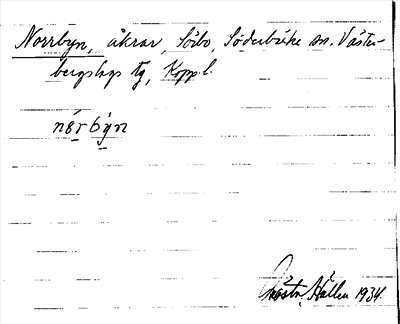 Norrbyn, åkrar, Söbo, Söderbärke sn. Väster-
bergslags tg, Kopp. l.
nórbýn
Hållen 1934.